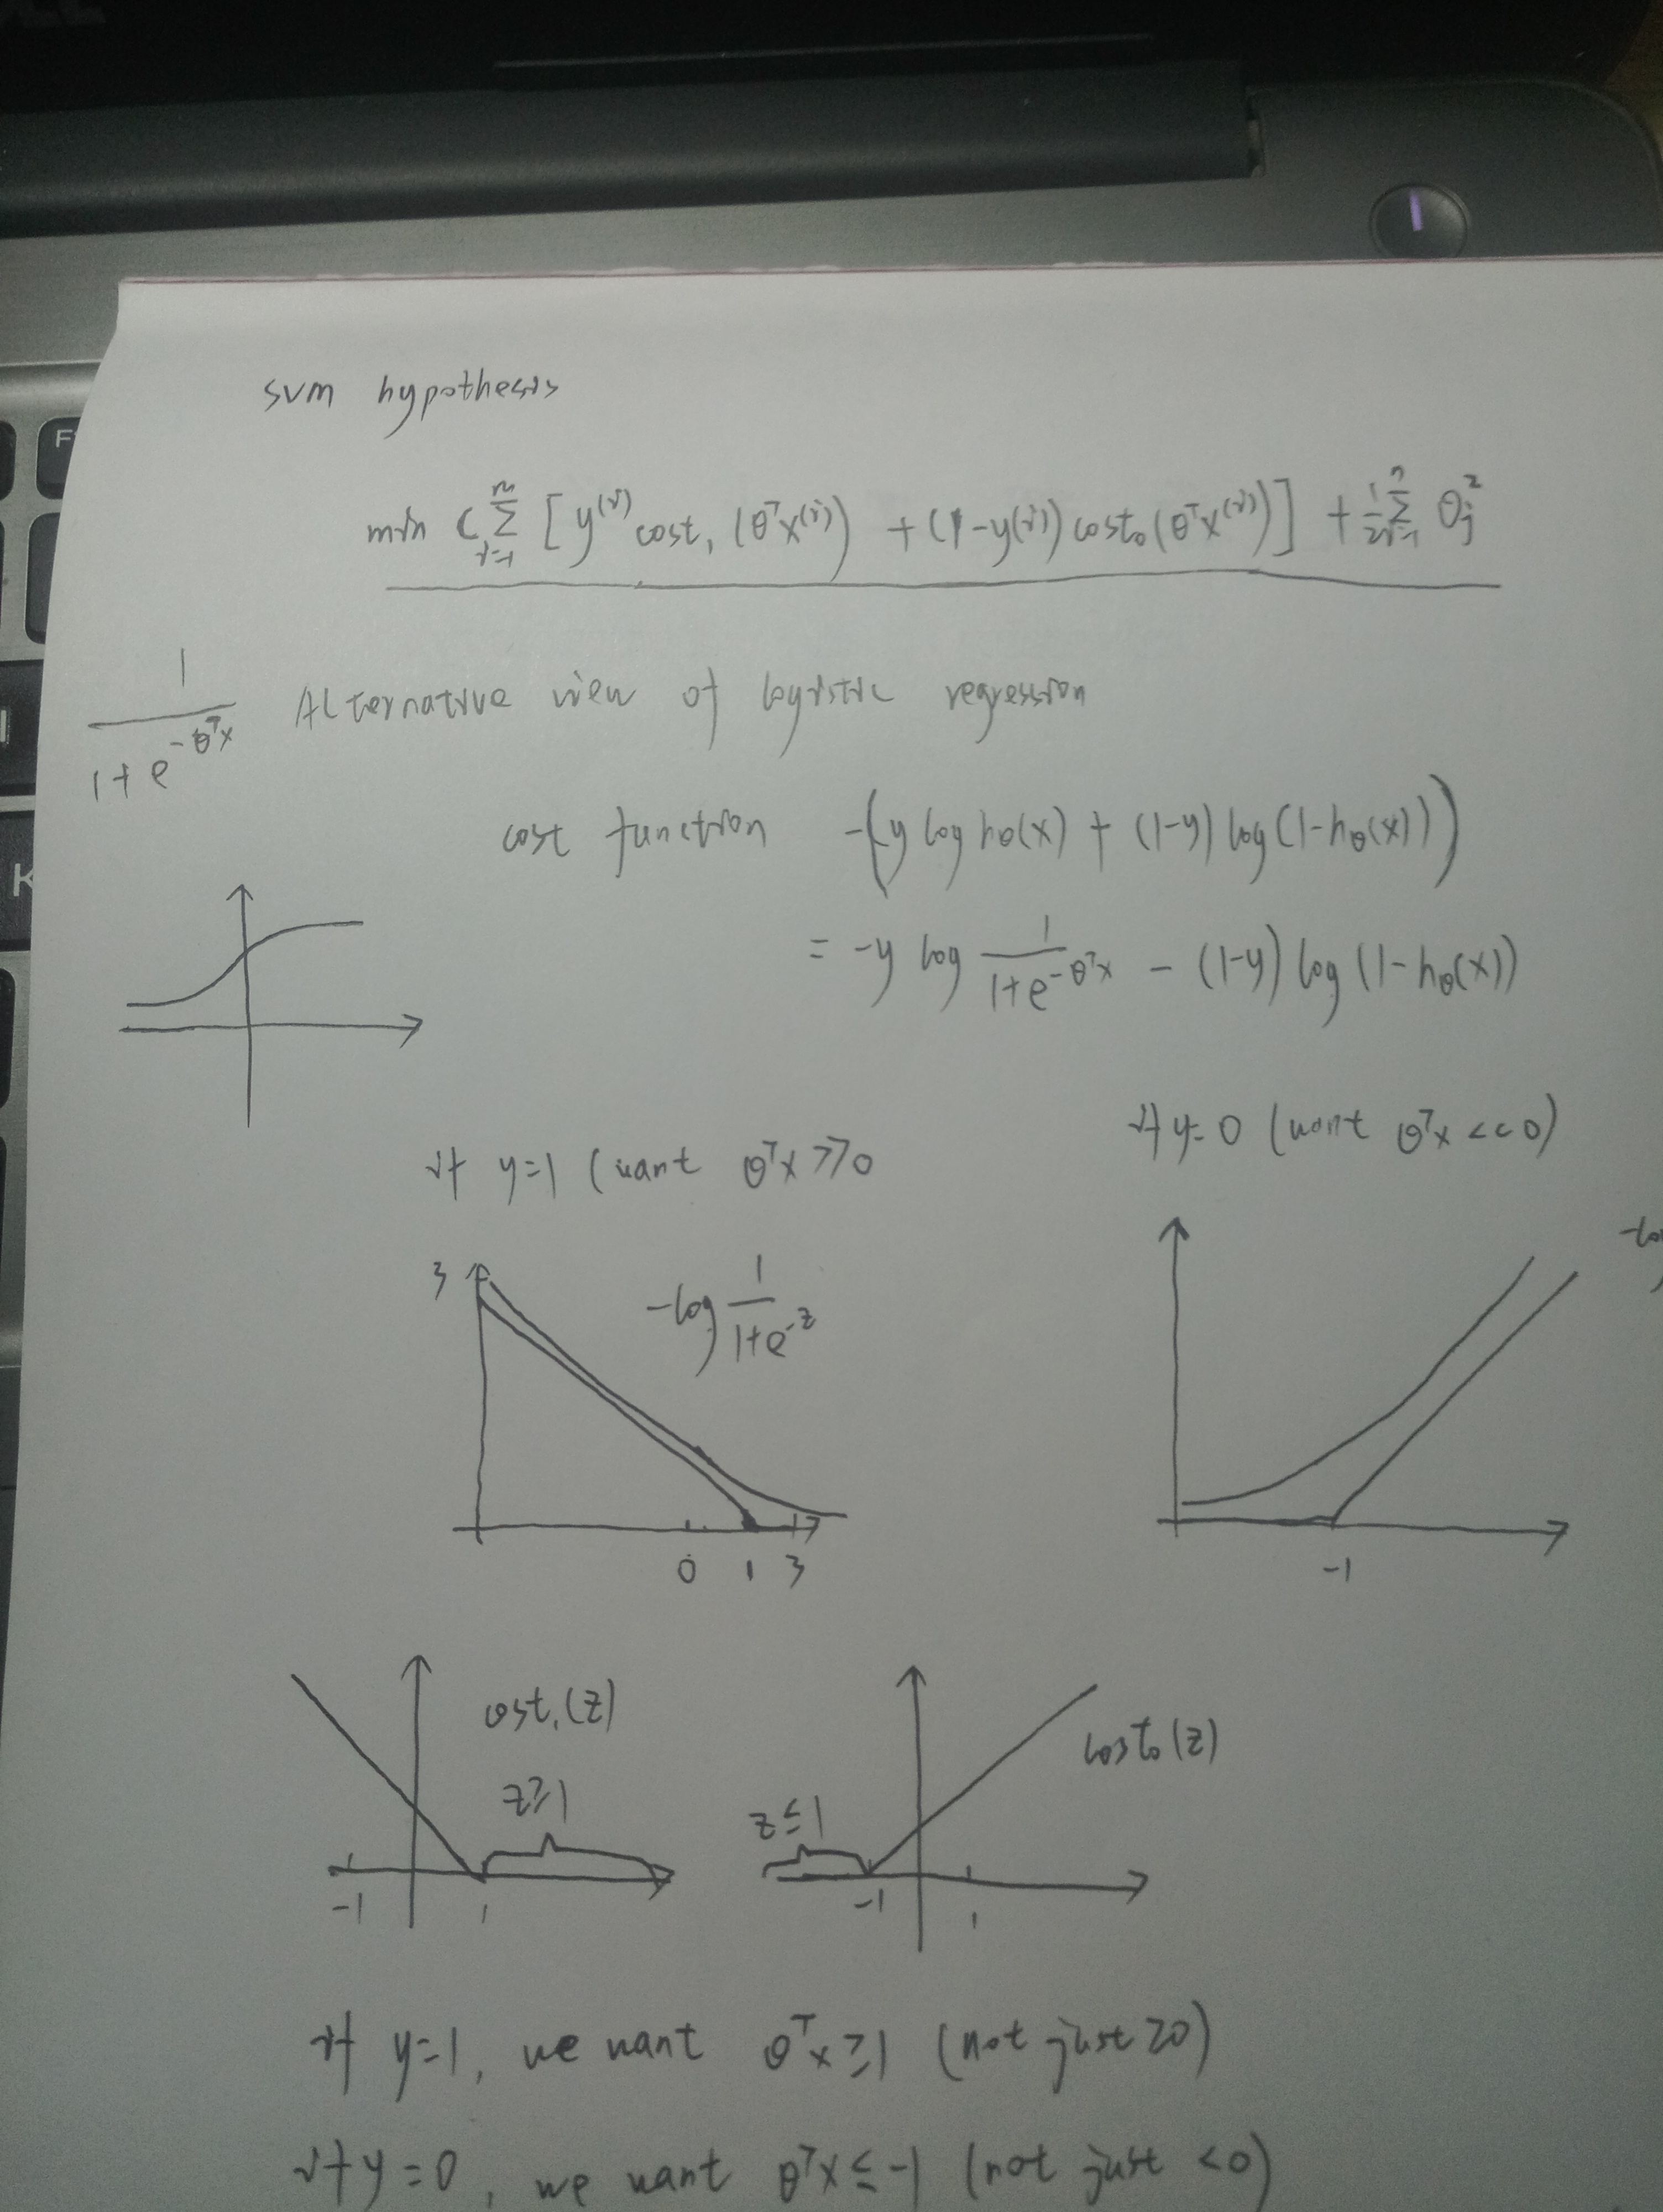 svm hypothesis
min C Σ_{i=1}^{m} [ y^{(i)} cost₁ (θᵀx^{(i)}) + (1-y^{(i)}) cost₀ (θᵀx^{(i)}) ] + 1/2 Σ_{i=1}^{n} θ_j^2
1/(1+e^{-θᵀx})
Alternative view of logistic regression
cost function -(y log hθ(x) + (1-y) log (1-hθ(x)))
= -y log 1/(1+e^{-θᵀx}) - (1-y) log (1-hθ(x))
if y=1 (want θᵀx >>0
if y=0 (want θᵀx <<0)
3
-log 1/(1+e^{-z})
0 1 3
-1
cost₁(z)
z≥1
-1 1
cost₀(z)
z≤1
-1 1
if y=1, we want θᵀx≥1 (not just ≥0)
if y=0, we want θᵀx≤-1 (not just <0)